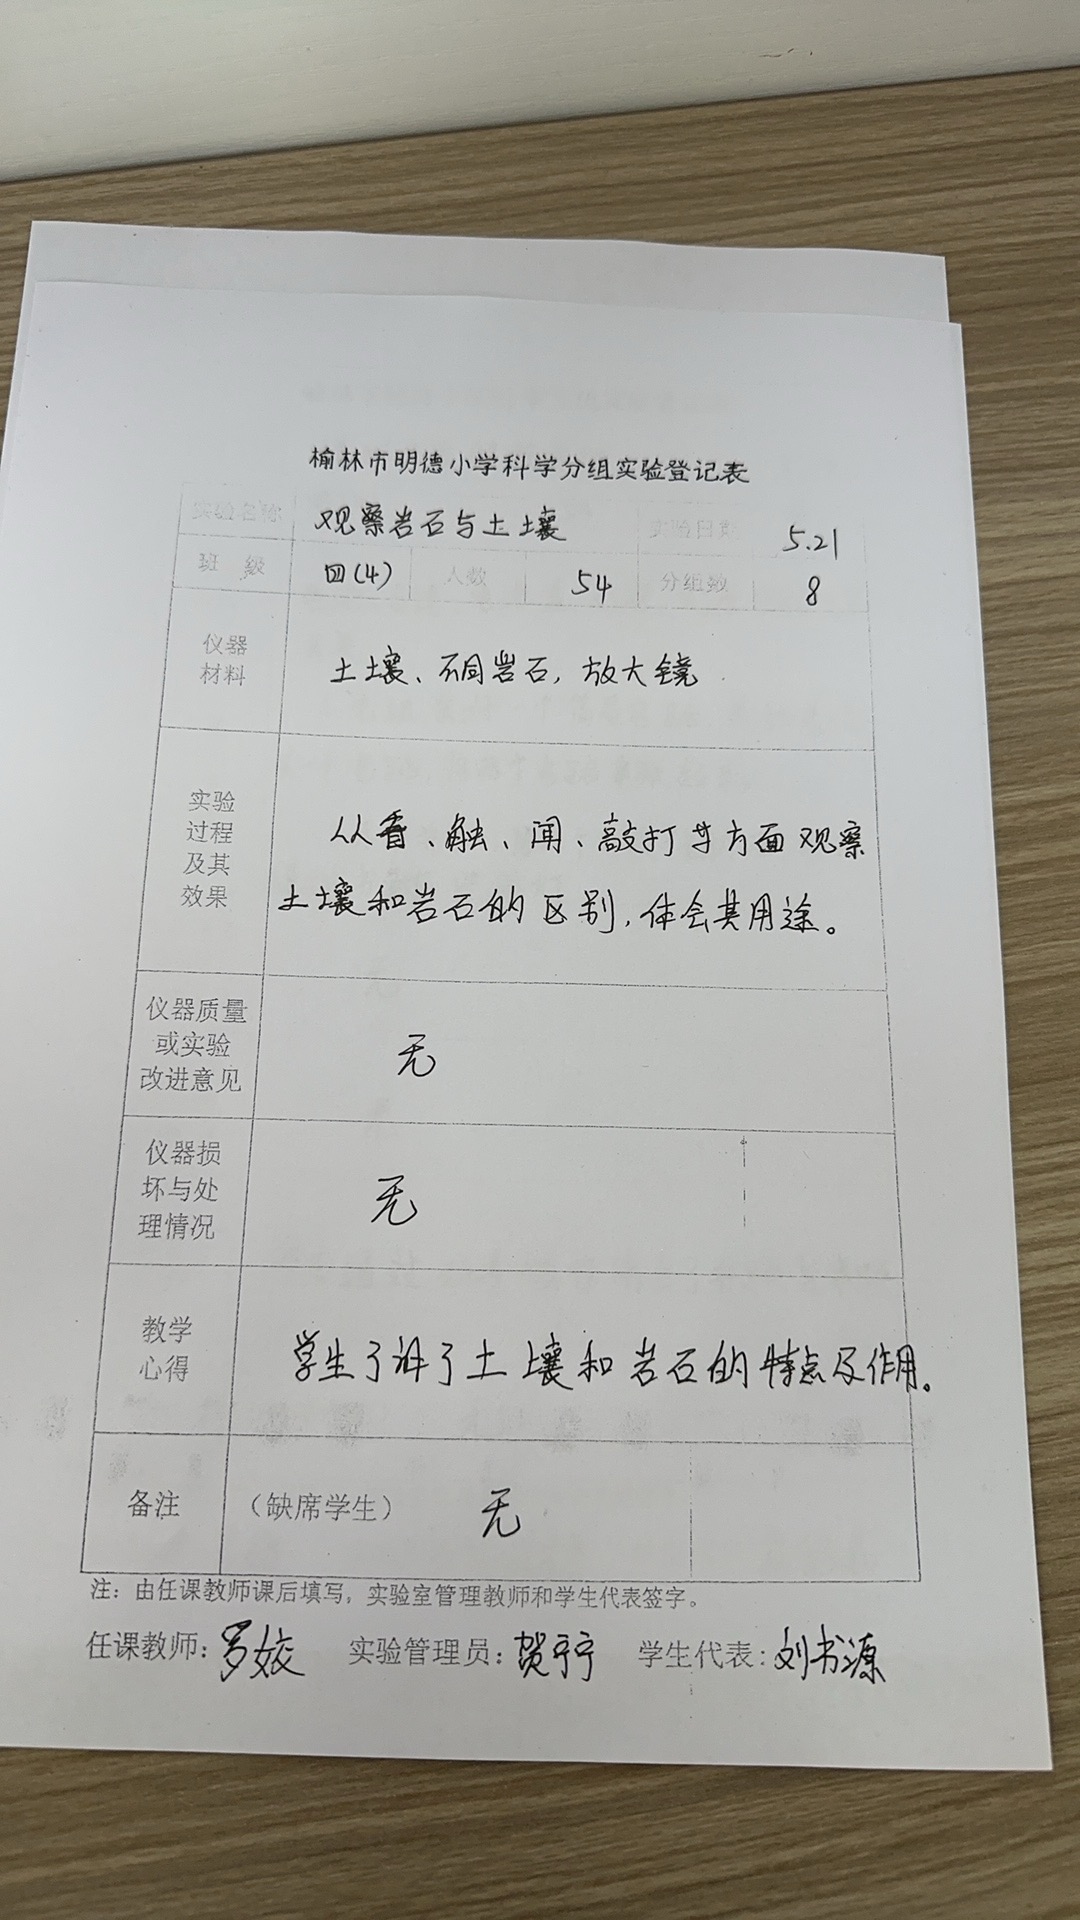 榆林市明德小学科学分组实验登记表
实验名称 观察岩石与土壤 实验日期 5.21
班 级 四(4) 人数 54 分组数 8
仪器
材料
土壤、不同岩石，放大镜
实验
过程
及其
效果
从看、触、闻、敲打等方面观察
土壤和岩石的区别，体会其用途。
仪器质量
或实验
改进意见
无
仪器损
坏与处
理情况
无
教学
心得
学生了讲了土壤和岩石的特点及作用。
备注 （缺席学生） 无
注：由任课教师课后填写，实验室管理教师和学生代表签字。
任课教师：罗姣 实验管理员：贺宁宁 学生代表：刘书源